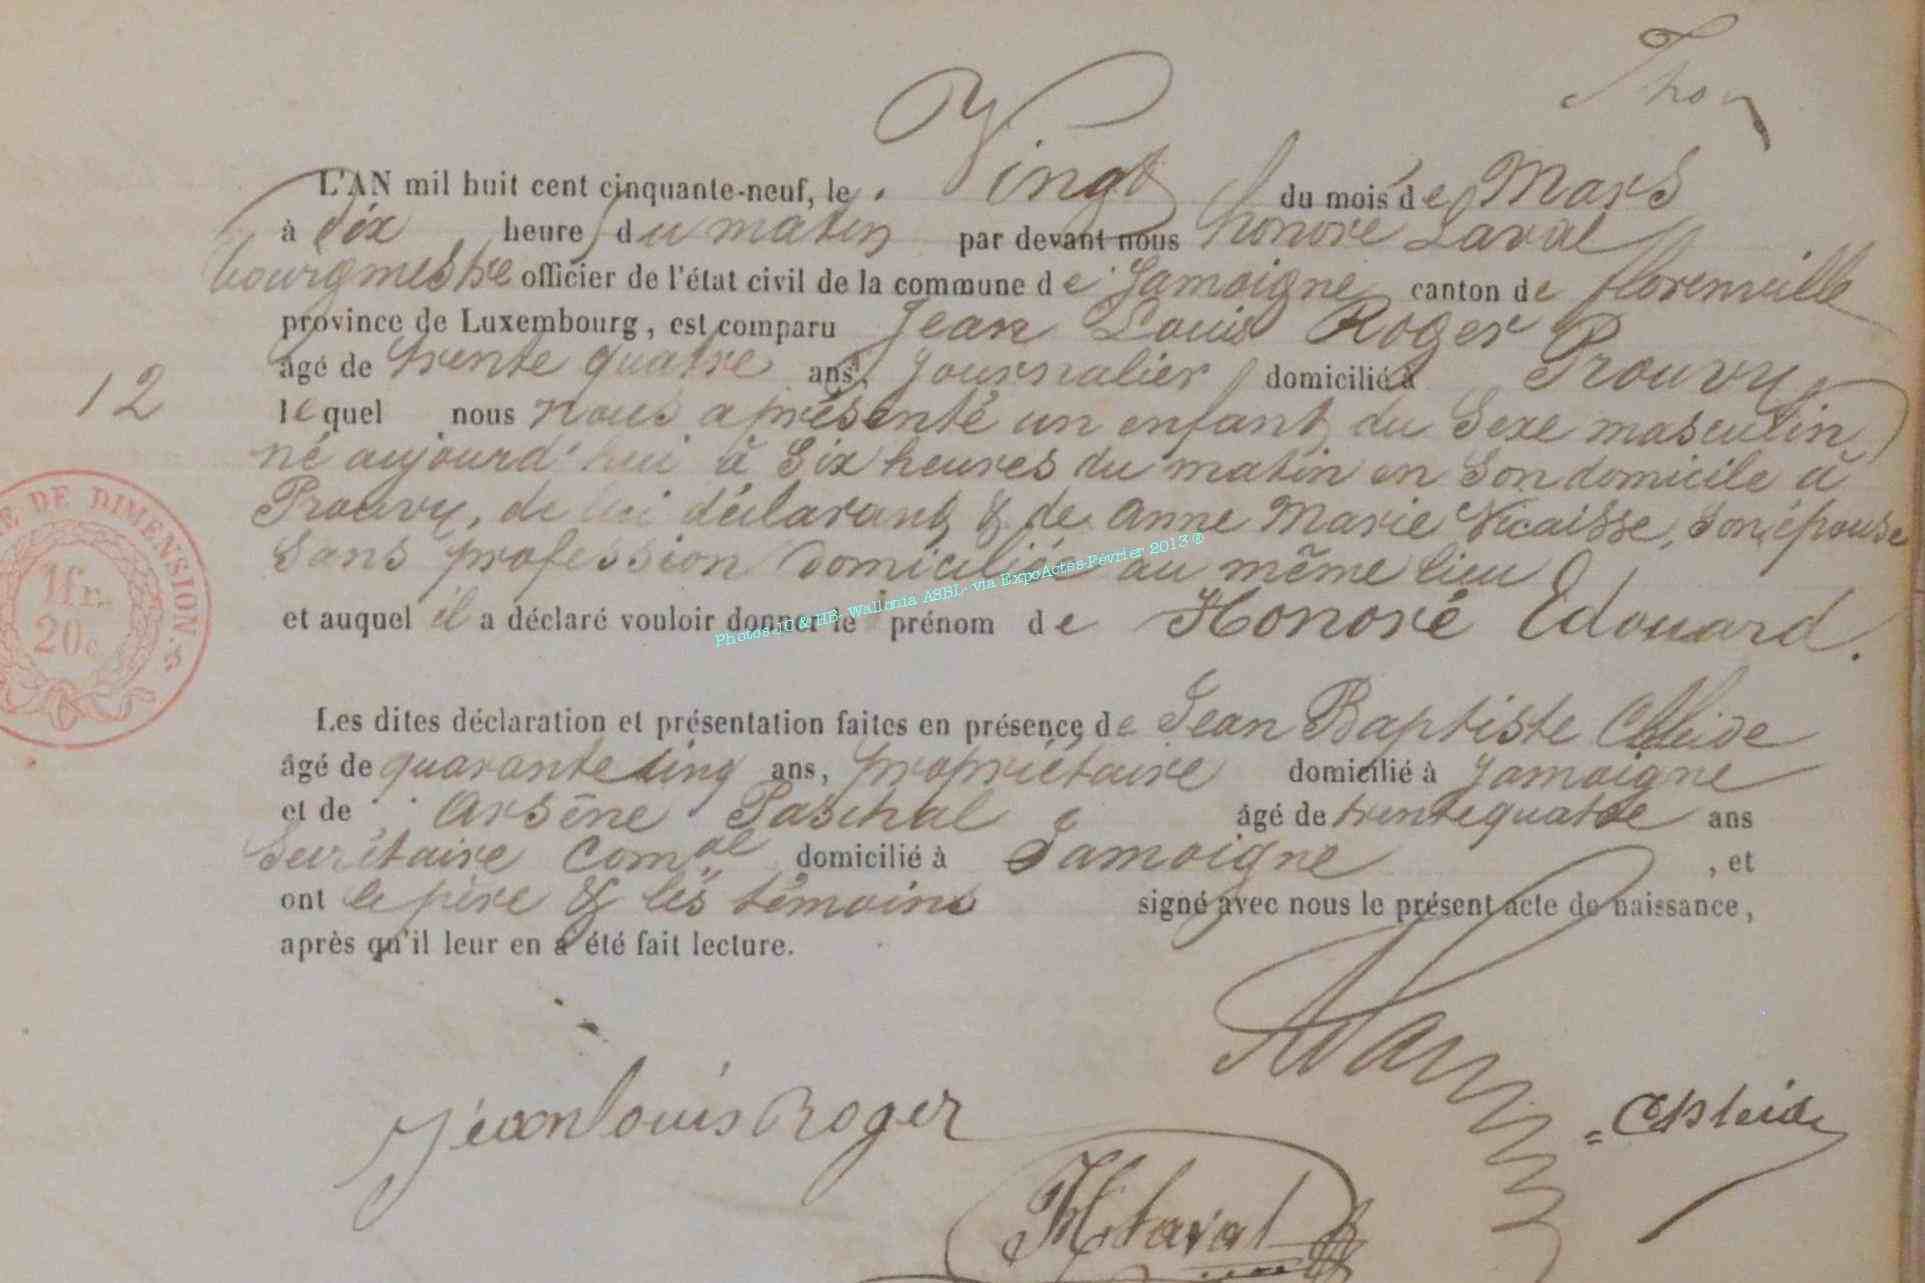 Thon
L'AN mil huit cent cinquante-neuf, le Vingt du mois de Mars
à dix heures du matin par devant nous honoré Laval
bourgmestre officier de l'état civil de la commune de Jamoigne canton de florenville
province de Luxembourg, est comparu Jean Louis Roger
âgé de trente quatre ans, Journalier domicilié à Prouvy
12
lequel nous nous a présenté un enfant du Sexe masculin
né aujourd'hui à Six heures du matin en Son domicile à
Prouvy, de lui déclarant & de Anne Marie Nicaisse, Son épouse
Sans profession domiciliée au même lieu
et auquel il a déclaré vouloir donner le prénom de Honoré Edouard.
Photos JC & HB Wallonia ASBL via ExpoActes-Février 2013 ®
DE DIMENSION.
1fr.
20c
Les dites déclaration et présentation faites en présence de Jean Baptiste
âgé de quarante cinq ans, propriétaire domicilié à Jamoigne
et de Arsêne Paschal âgé de trente quatre ans
Secrétaire Comal domicilié à Jamoigne, et
ont le père & les témoins signé avec nous le présent acte de naissance,
après qu'il leur en a été fait lecture.
jean louis Roger
H Laval